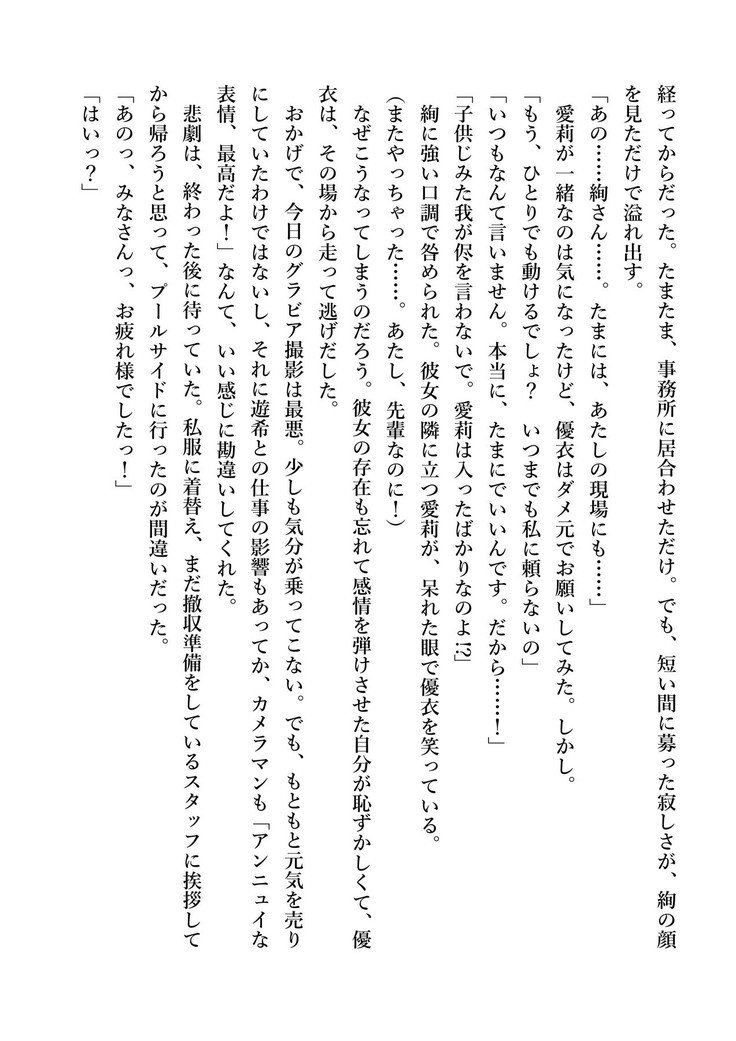 経ってからだった。たまたま、事務所に居合わせただけ。でも、短い間に募った寂しさが、絢の顔
を見ただけで溢れ出す。
「あの……絢さん……。たまには、あたしの現場にも……」
　愛莉が一緒なのは気になったけど、優衣はダメ元でお願いしてみた。しかし。
「もう、ひとりでも動けるでしょ？　いつまでも私に頼らないの」
「いつもなんて言いません。本当に、たまにでいいんです。だから………！」
「子供じみた我が侭を言わないで。愛莉は入ったばかりなのよ!?」
　絢に強い口調で咎められた。彼女の隣に立つ愛莉が、呆れた眼で優衣を笑っている。
(またやっちゃった……。あたし、先輩なのに！)
　なぜこうなってしまうのだろう。彼女の存在も忘れて感情を弾けさせた自分が恥ずかしくて、優
衣は、その場から走って逃げだした。
　おかげで、今日のグラビア撮影は最悪。少しも気分が乗ってこない。でも、もともと元気を売り
にしていたわけではないし、それに遊希との仕事の影響もあってか、カメラマンも「アンニュイな
表情、最高だよ！」なんて、いい感じに勘違いしてくれた。
　悲劇は、終わった後に待っていた。私服に着替え、まだ撤収準備をしているスタッフに挨拶して
から帰ろうと思って、プールサイドに行ったのが間違いだった。
「あのっ、みなさんっ、お疲れ様でしたっ！」
「はいっ？」